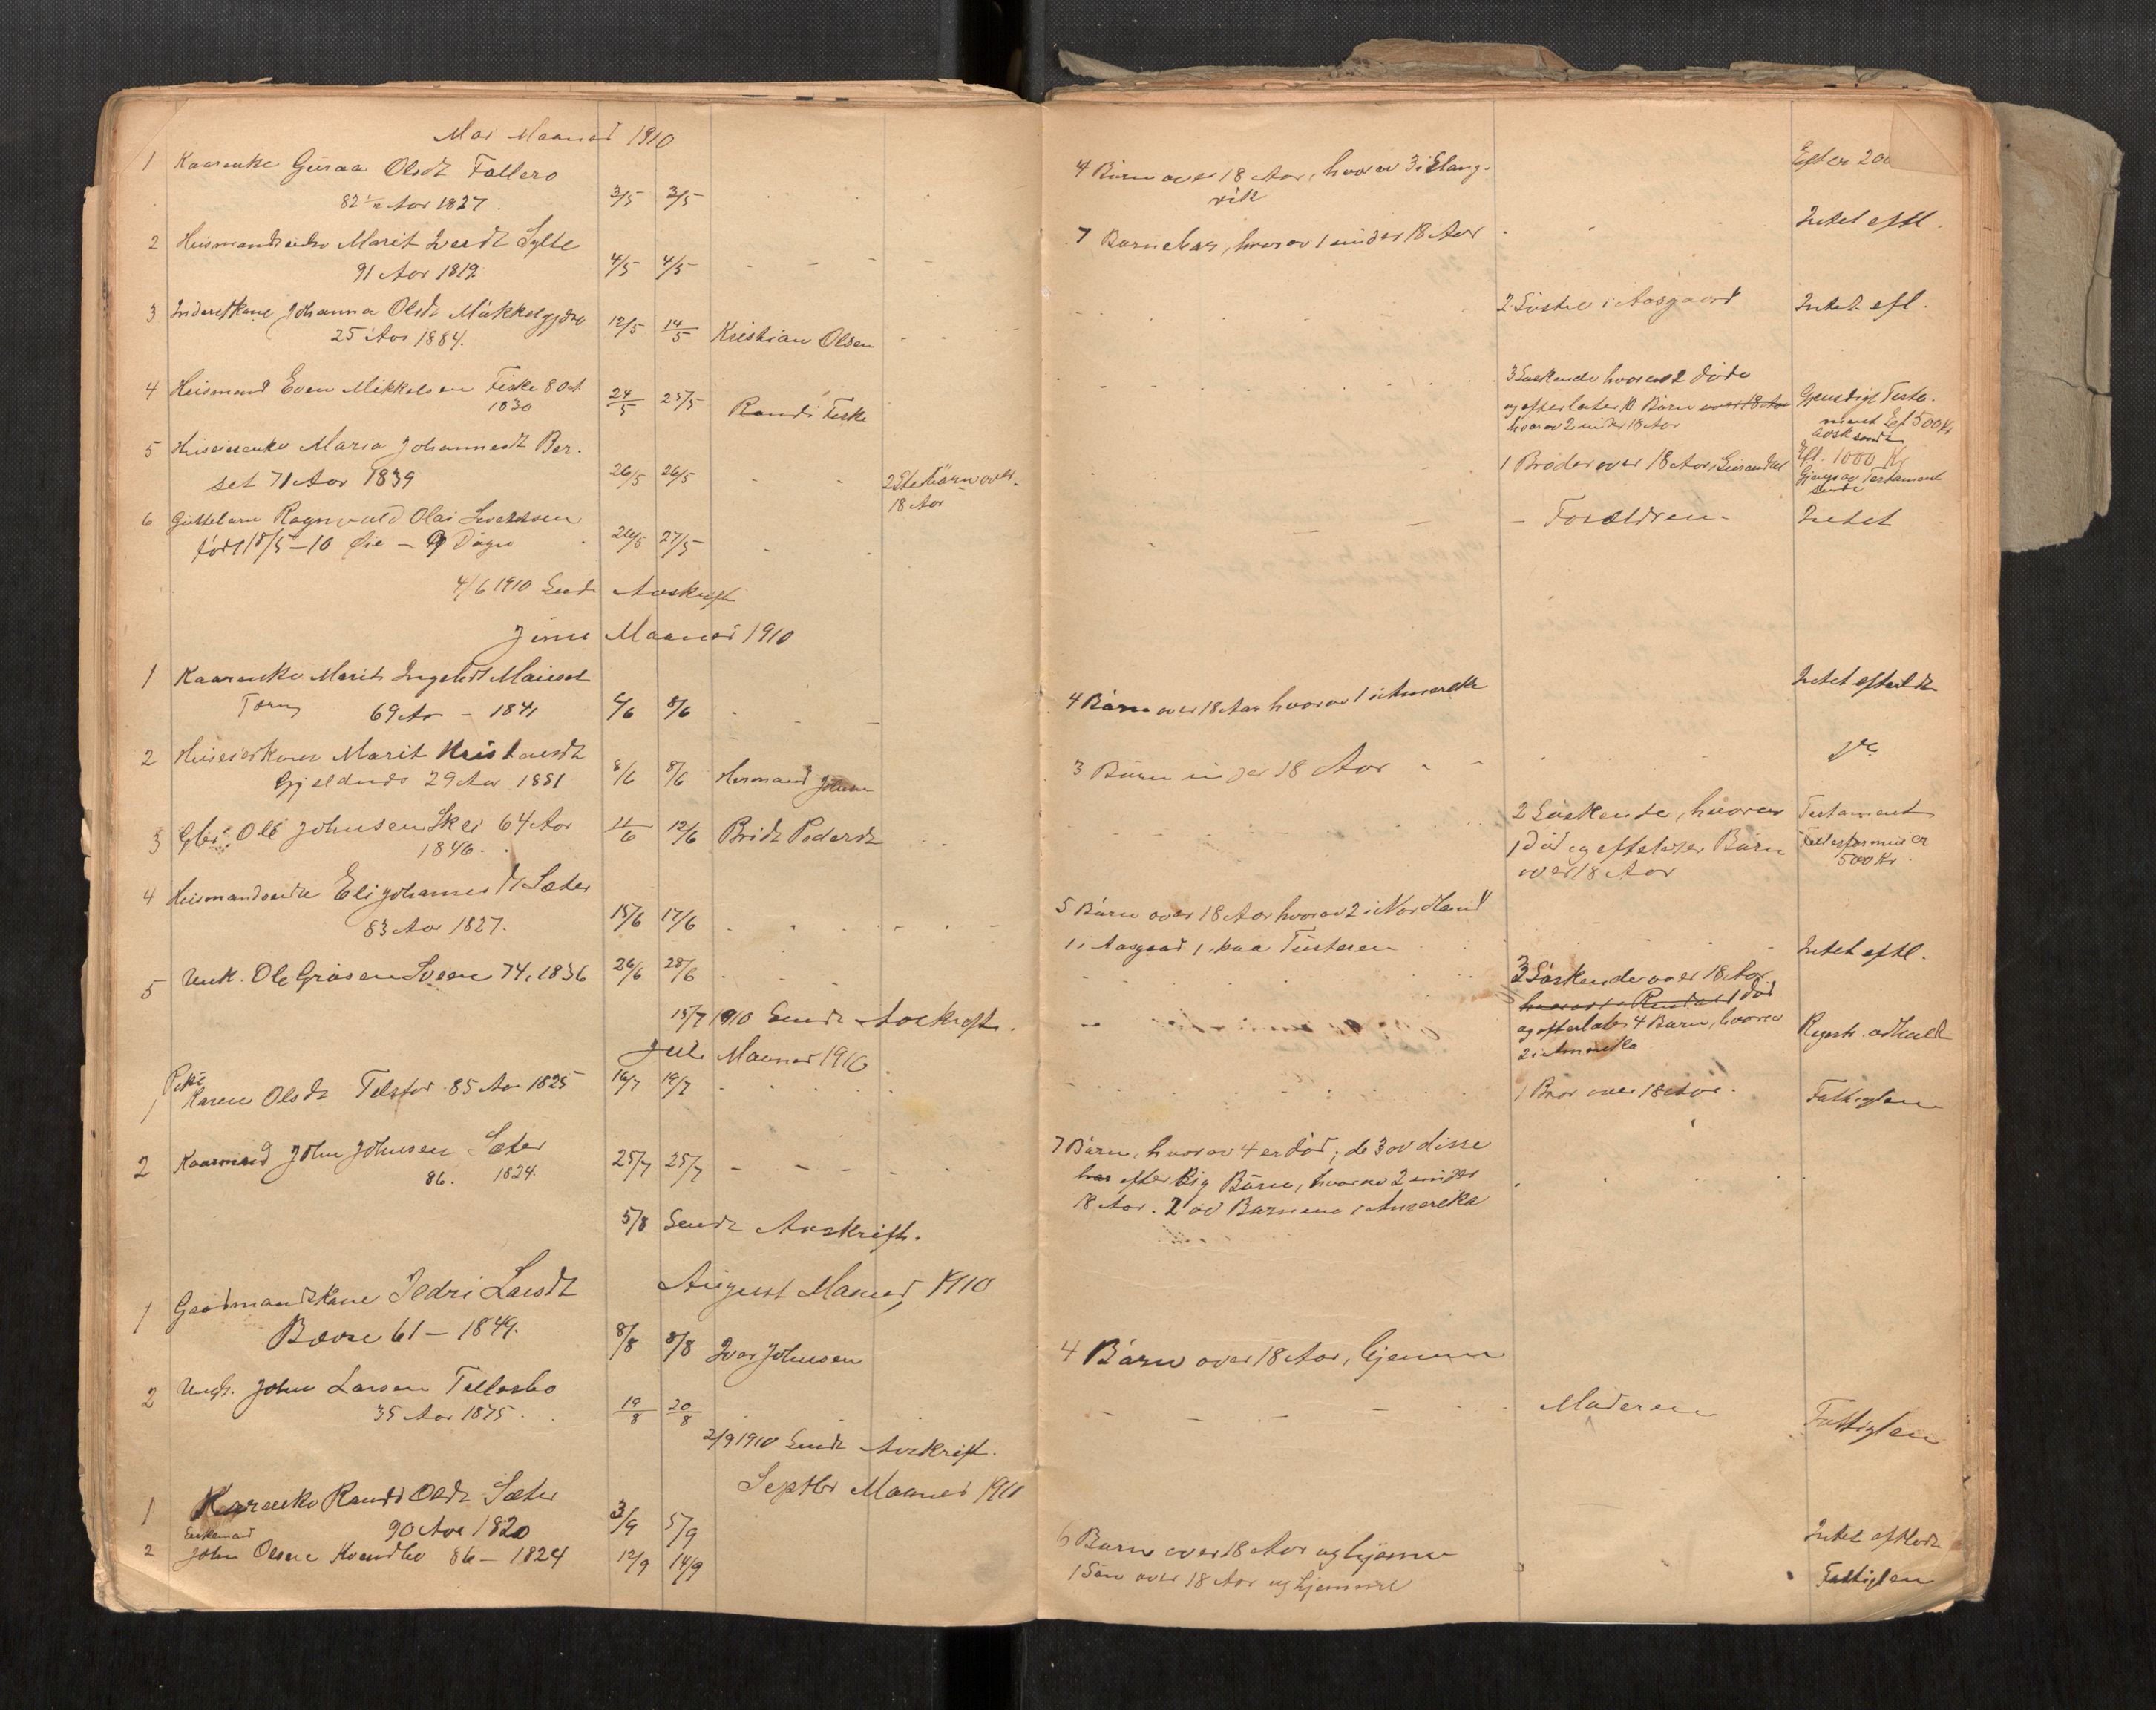 Mai Maaned 1910
1 Kaarenke Guraa Olsdt Fallero 4 Børn over 18 Aar, hvorav 3 i Stang- Efter 200
82 1/2 Aar 1827. 3/5 3/5 vik
2 Husmandsenke Marit Iversdt Sylte 7 Børnebør, hvorav 1 under 18 Aar Intet eftl.
91 Aar 1819 4/5 4/5
3 Inderstkone Johanna Olsdt Mikkelgjær 12/5 14/5 Kristian Olsen 2 Søstre i Aasgaard Intet efl.
25 Aar 1884.
4 Husmand Even Mikkelsen Fiske 80 24/5 25/5 Randi Fiske 3 Søskende hvorav 2 døde
1830 og efterlater 10 Børn over 18 Aar Gjensidigt Testa-
hvorav 2 under 18 Aar ment Eft 500 Kr
5 Maria Johannesdt Bør-
set 71 Aar 1839 26/5 26/5 2 Stebørn over 18 Aar 1 Broder over 18 Aar, Surendal Eft. 1000 Kr
Testament
6 Guttebarn Ragnvald Olai Iversen Forældrene Intet
født 18/5-10 Øie - 9 Dage 26/5 27/5
4/6 1910 Sendt Avskrift
Juni Maaned 1910
1 Kaarenke Marit Ingebr Mauset 4 Børn over 18 Aar hvorav 1 i Amerika Intet efterladt
69 Aar - 1841 6/6 8/6
2 Marit Kristansdt 3 Børn under 18 Aar
Gjeldnes 29 Aar 1881 8/6 8/6 Hermand Johnsen
3 Gbr. Ole Johnsen Skei 64 Aar 11/6 12/6 Brit Pedersdt 2 Søskende, hvorav Testament
1846. 1 død og efterlater Børn
over 18 Aar 500 Kr.
4 Husmandsenke Eli Johannesdt Sæter
83 Aar 1827. 15/6 17/6 5 Børn over 18 Aar hvorav 2 i Nordland
1 i Aasgaard 1 paa Tusteren Intet eftl.
5 Unk. Ole Graasen Sveen 74, 1836 26/6 28/6 3 Søskende over 18 Aar
hvorav 1 død
og efterlater 4 Børn, hvorav
2 i Amerika
15/7 1910 Sendt Avskrift.
Juli Maaned 1910
Pike
1 Karen Olsdt Telstad 85 Aar 1825 16/7 19/7 1 Bror over 18 Aar. Fattiglem
2 Kaarmand John Johnsen Sæter 25/7 25/7 7 Børn, hvorav 4 er død; de 3 av disse
86. 1824. har efter sig Børn, hvorav 2 under
18 Aar. 2 av Børnene i Amerika
5/8 Sendt Avskrift.
August Maaned 1910
1 Gaardmandskone Ildri Larsdt
Bøvre 61 - 1849. 8/8 8/8 Ivar Johnsen 4 Børn over 18 Aar, hjemme
2 Ungk. John Larsen Tellesbø
35 Aar 1875. 19/8 20/8 Moderen Fattiglem
2/9 1910 Sendt Avskrift.
Septbr Maaned 1910
1 Kaarenke Randi Olsdt Sæter
90 Aar 1820 3/9 5/9 6 Børn over 18 Aar og hjemme Intet efterladt
Enkemand
2 John Olsen Kvendbø 86 - 1824 12/9 14/9 1 Søn over 18 Aar og hjemme Fattiglem